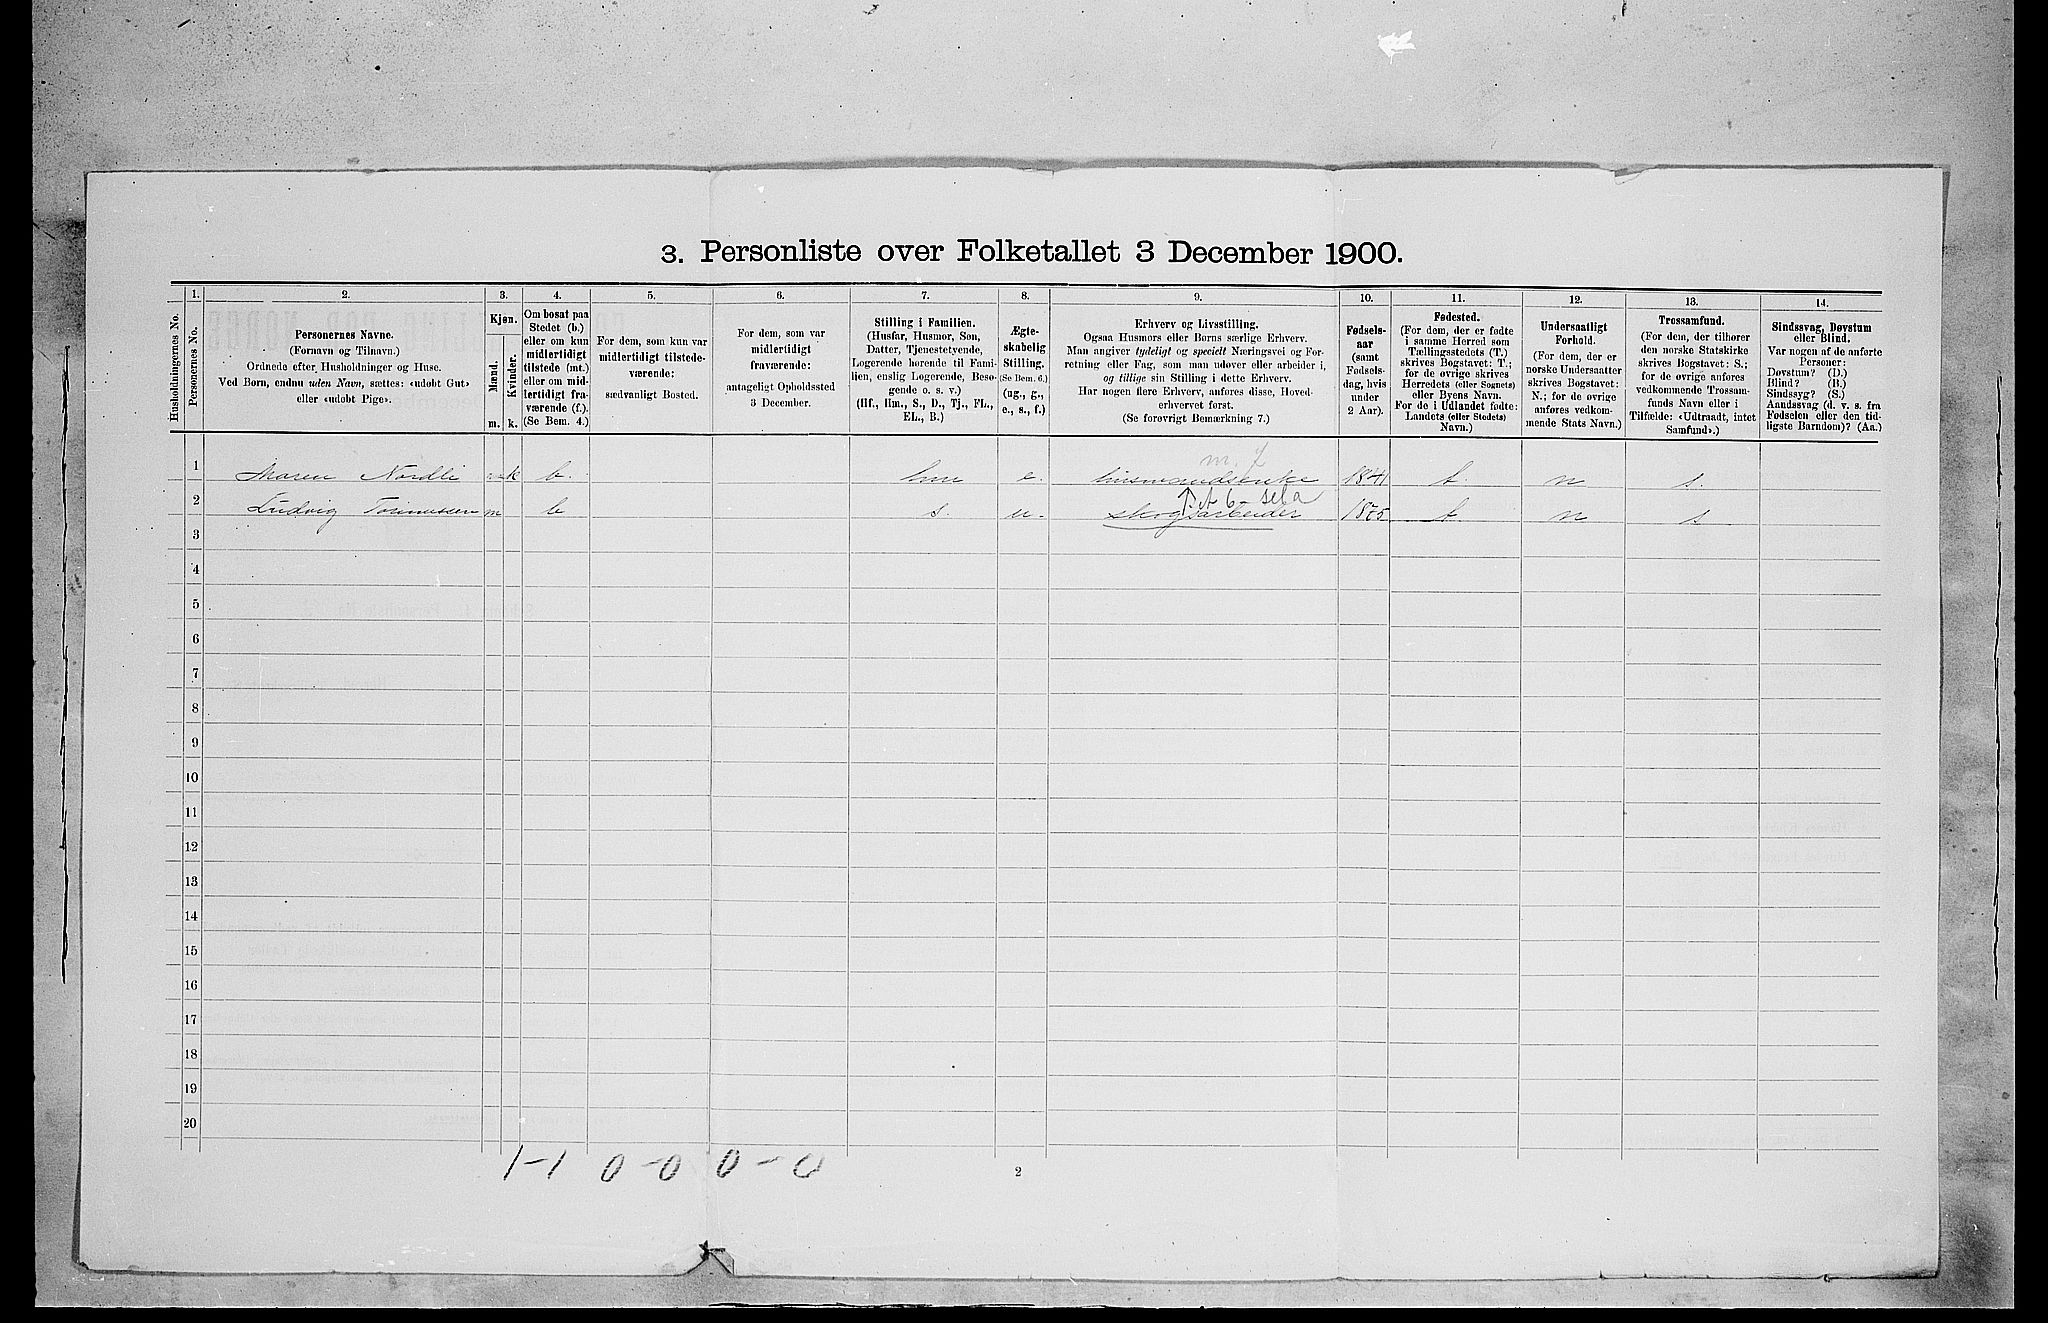 3. Personliste over Folketallet 3 December 1900.
1. 2. 3. 4. 5. 6. 7. 8. 9. 10. 11. 12. 13. 14.
Husholdningernes No.
Personernes No.
Personernes Navne.
(Fornavn og Tilnavn.)
Ordnede efter Husholdninger og Huse.
Ved Børn, endnu uden Navn, sættes: «udøbt Gut»
eller «udøbt Pige».
Kjøn.
Mænd.
Kvinder.
m. k.
Om bosat paa
Stedet (b.)
eller om kun
midlertidigt
tilstede (mt.)
eller om mid-
lertidigt fra-
værende (f.).
(Se Bem. 4.)
For dem, som kun var
midlertidigt tilstede-
værende:
sædvanligt Bosted.
For dem, som var
midlertidigt
fraværende:
antageligt Opholdssted
3 December.
Stilling i Familien.
(Husfar, Husmor, Søn,
Datter, Tjenestetyende,
Logerende hørende til Fami-
lien, enslig Logerende, Besø-
gende o. s. v.)
(Hf., Hm., S., D., Tj., FL.,
EL., B.)
Ægte-
skabelig
Stilling.
(Se Bem. 6.)
(ug., g.,
e., s., f.)
Erhverv og Livsstilling.
Ogsaa Husmors eller Børns særlige Erhverv.
Man angiver tydeligt og specielt Næringsvei og For-
retning eller Fag, som man udøver eller arbeider i,
og tillige sin Stilling i dette Erhverv.
Har nogen flere Erhverv, anføres disse, Hoved-
erhvervet først.
(Se forøvrigt Bemærkning 7.)
Fødsels-
aar
(samt
Fødsels-
dag, hvis
under
2 Aar).
Fødested.
(For dem, der er fødte
i samme Herred som
Tællingsstedets (T.)
skrives Bogstavet: T.;
for de øvrige skrives
Herredets (eller Sognets)
eller Byens Navn.
For de i Udlandet fødte:
Landets (eller Stedets)
Navn.)
Undersaatligt
Forhold.
(For dem, der er
norske Undersaatter
skrives Bogstavet:
N.; for de øvrige
anføres vedkom-
mende Stats Navn.)
Trossamfund.
(For dem, der tilhører
den norske Statskirke
skrives Bogstavet: S.;
for de øvrige anføres
vedkommende Trossam-
funds Navn eller i
Tilfælde: «Udtraadt, intet
Samfund».)
Sindssvag, Døvstum
eller Blind.
Var nogen af de anførte
Personer:
Døvstum? (D.)
Blind? (B.)
Sindssyg? (S.)
Aandssvag (d. v. s. fra
Fødselen eller den tid-
ligste Barndom)? (Aa.)
1 Maren Nordli k b. hm e. husmandsenke 1841 t. n s.
2 Ludvig m b s. u. skogsarbeider 1875 t n s
3
4
5
6
7
8
9
10
11
12
13
14
15
16
17
18
19
20
1-1 0-0 0-0
2